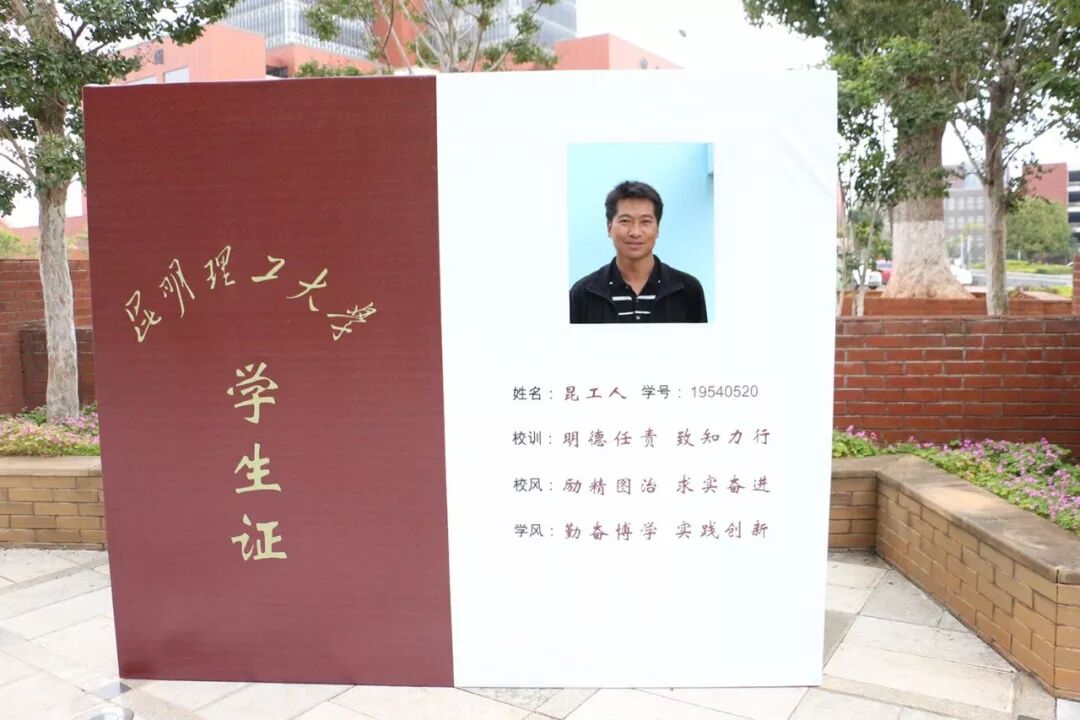 昆明理工大学
学
生
证
姓名：昆工人 学号：19540520
校训：明德任责 致知力行
校风：励精图治 求实奋进
学风：勤奋博学 实践创新